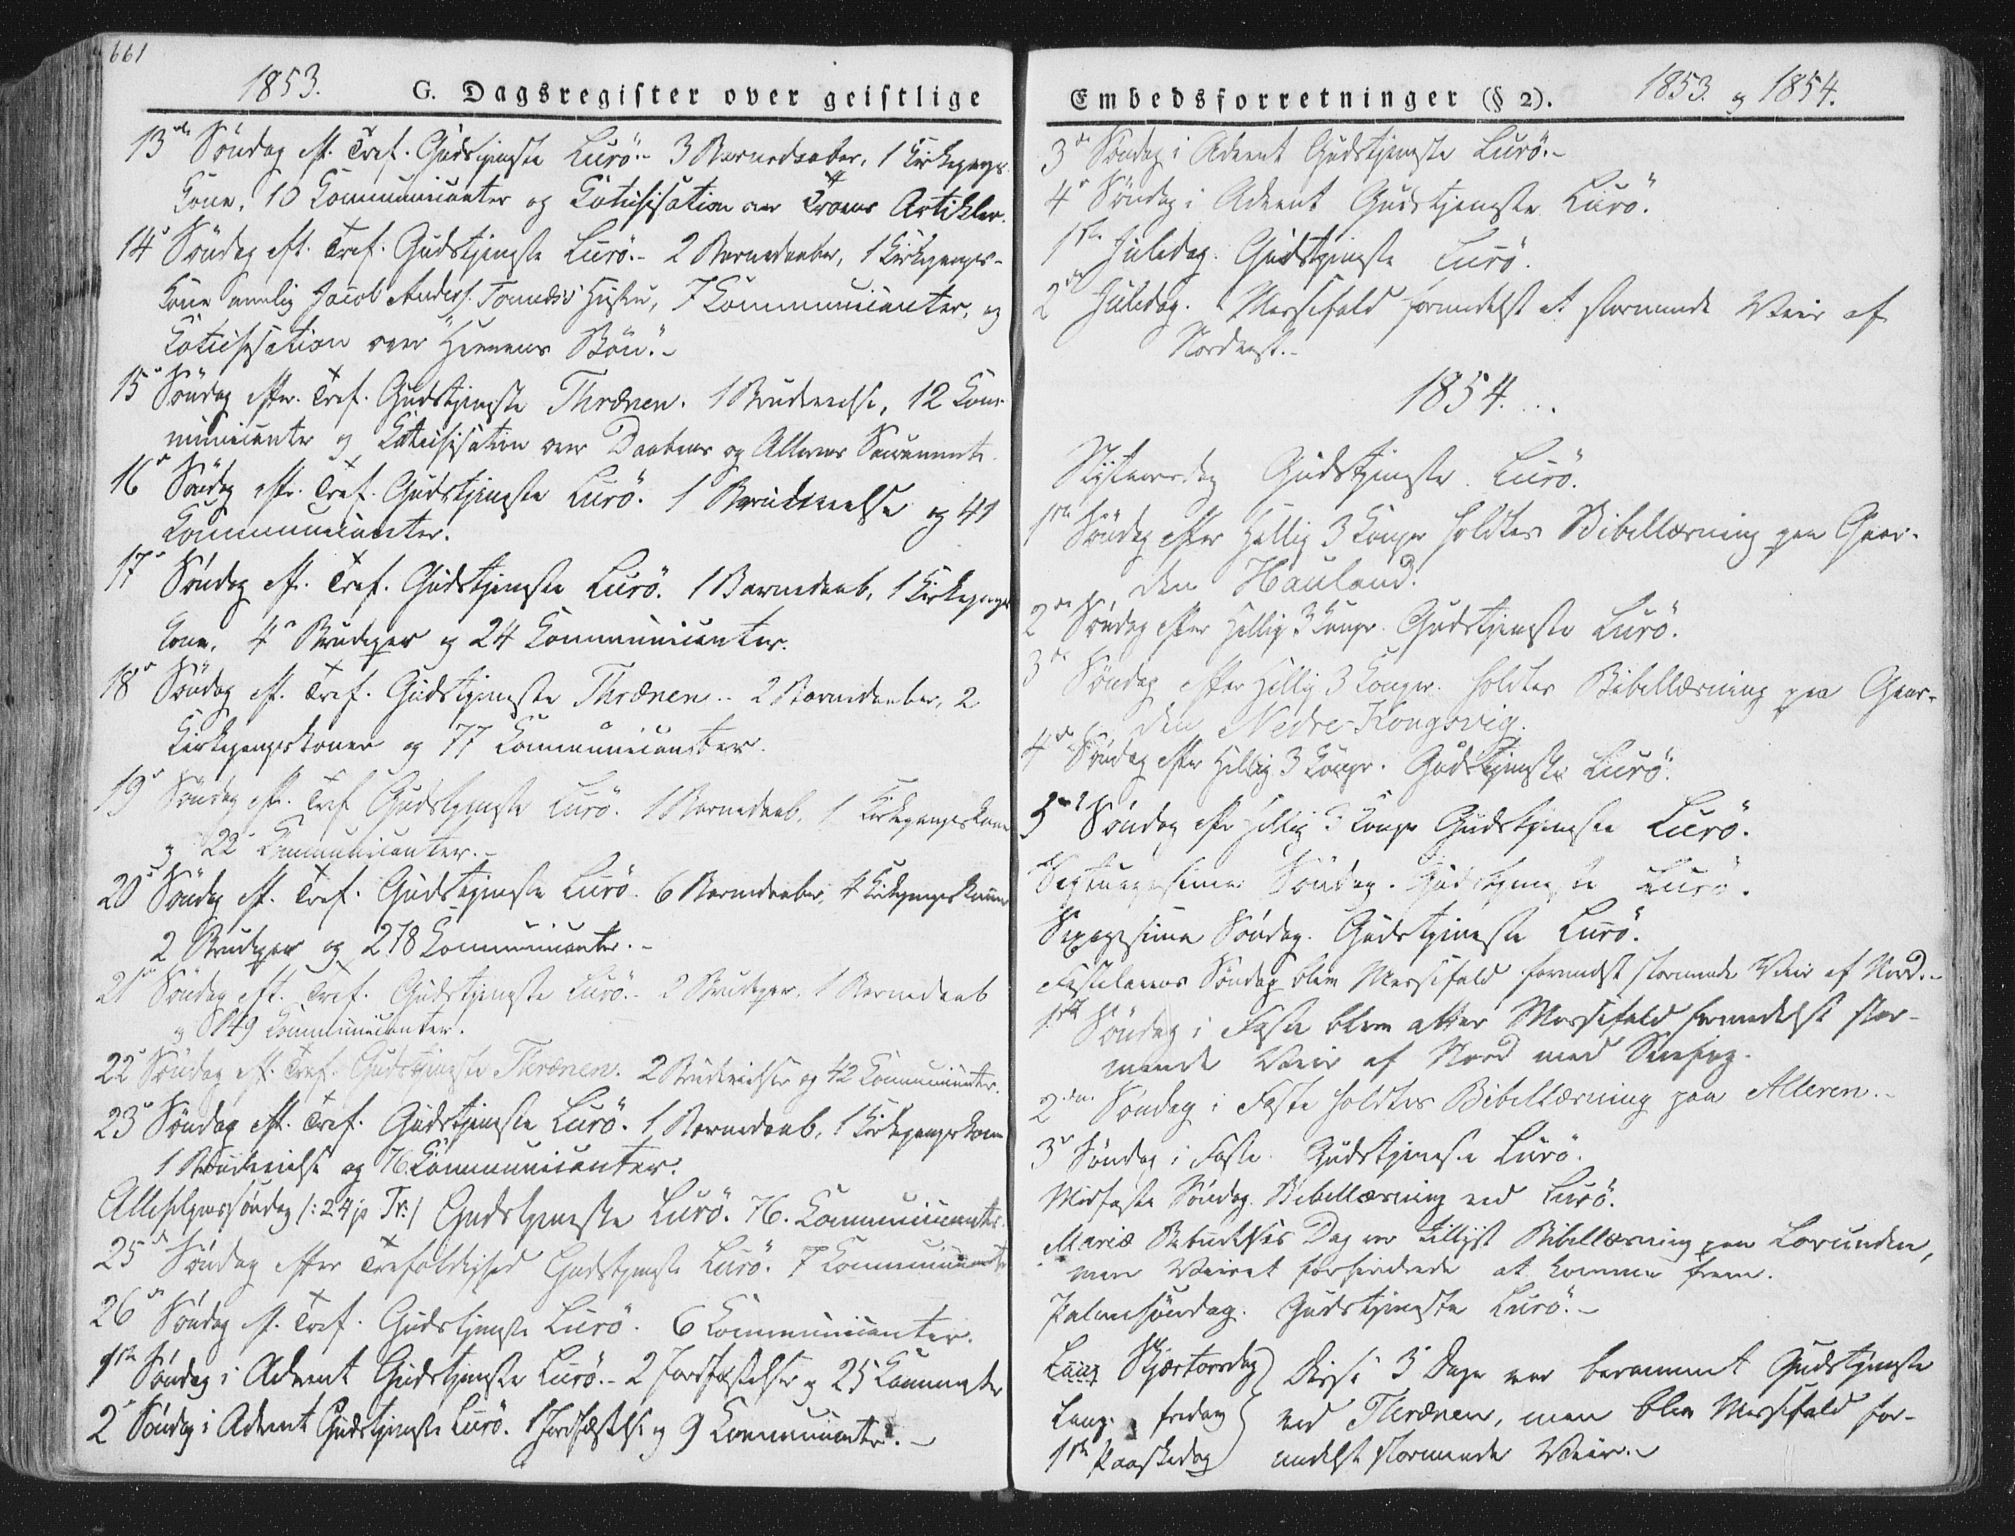 661
1853.
G. Dagsregister over geistlige
13de Søndag eft. Tref. Gudstjeneste Lurö.- 3 Barnedaaber, 1 Kirkegangs-
kone, 10 Communicanter og Catechisation over Troens Artikler.
14de Søndag eft. Tref. Gudstjeneste Lurö.- 2 Barnedaaber, 1 Kirkegangs-
kone nemlig Jacob Anders. Hustru, 7 Communicanter, og
Catechisation over Herrens Bön.-
15de Søndag efter Tref. Gudstjeneste Thrænen. 1 Brudevielse, 12 Com-
municanter og Catechisation over Daabens og Alterens Sacramente.
16de Søndag eftr. Tref. Gudstjeneste Lurö. 1 Brudevielse og 41
Communicanter.
17de Søndag eft. Tref. Gudstjeneste Lurö. 1 Barnedaab, 1 Kirkegangs
kone, 4 Brudepar og 24 Communicanter.
18de Søndag eft. Tref. Gudstjeneste Thrænen.- 2 Barnedaaber, 2
Kirkegangskoner og 77 Communicanter.
19de Søndag eftr. Tref Gudstjeneste Lurö. 1 Barnedaab, 1 Kirkegangskone
og 22 Communicanter.-
20de Søndag eft. Tref. Gudstjeneste Lurö. 6 Barnedaaber, 4 Kirkegangskoner
2 Brudepar og 278 Communicanter.-
21de Søndag eft. Tref. Gudstjeneste Lurö.- 2 Brudepar, 1 Barnedaab
og 149 Communicanter.
22de Søndag eft. Tref. Gudstjeneste Thrænen. 2 Brudevielser og 42 Communicanter.
23de Søndag eft. Tref. Gudstjeneste Lurö. 1 Barnedaab, 1 Kirkegangskone
1 Brudevielse og 76 Communicanter.
Allehelgenssøndag /: 24 p Tr:/ Gudstjeneste Lurö. 76. Communicanter.
25de Søndag efter Trefoldighed Gudstjeneste Lurö. 7 Communicanter
26de Søndag eft. Tref. Gudstjeneste Lurö. 6 Communicanter.
1ste Søndag i Advent Gudstjeneste Lurö.- 2 Jordfæstelser og 25 Communicanter
2de Søndag i Advent Gudstjeneste Lurö. 1 Jordfæstelse og 9 Communicanter.-
Embedsforretninger (§ 2).
1853. og 1854.
3de Søndag i Advent Gudstjeneste Lurö.-
4de Søndag i Advent Gudstjeneste Lurö.
1ste Juledag. Gudstjeneste Lurö.
2den Juledag. Messefald formedelst et stormende Veir af
Nordvest.-
1854. ...
Nytaarsdag Gudstjeneste Lurö.
1ste Søndag efter Hellig 3 Konger holdtes Bibellæsning paa Gaar-
den Hauland.
2den Søndag efter Hellig 3 Konger. Gudstjeneste Lurö.
3de Søndag efter Hellig 3 Konger. holdtes Bibellæsning paa Gaar-
den Nedre Kongsvig.
4de Søndag efter Hellig 3 Konger. Gudstjeneste Lurö.
5te Søndag eftr Hellig 3 Konger Gudstjeneste Lurö.
Septuagesima Søndag. Gudstjeneste Lurö.
Sexagesima Søndag. Gudstjeneste Lurö.
Fastelavns Søndag blev Messefald formedelst stormende Veir af Nord.-
1ste Søndag i Faste blev atter Messefald formedelst stor-
mende Veir af Nord med Snefog.
2den Søndag i Faste holdtes Bibellæsning paa Alleren.-
3de Søndag i Faste. Gudstjeneste Lurö.
Midfaste Søndag. Bibellæsning ved Lurö.
Mariæ Bebudelses Dag var tillyst Bibellæsning paa Lovunden,
men Veiret forhindrede at komme frem.
Palmesöndag. Gudstjeneste Lurö.-
Skjærtorsdag } Disse 3 Dage var berammet Gudstjeneste
Lang- fredag } ved Thrænen, men blev Messefald for-
1ste Paaskedag } medelst stormende Veir.-